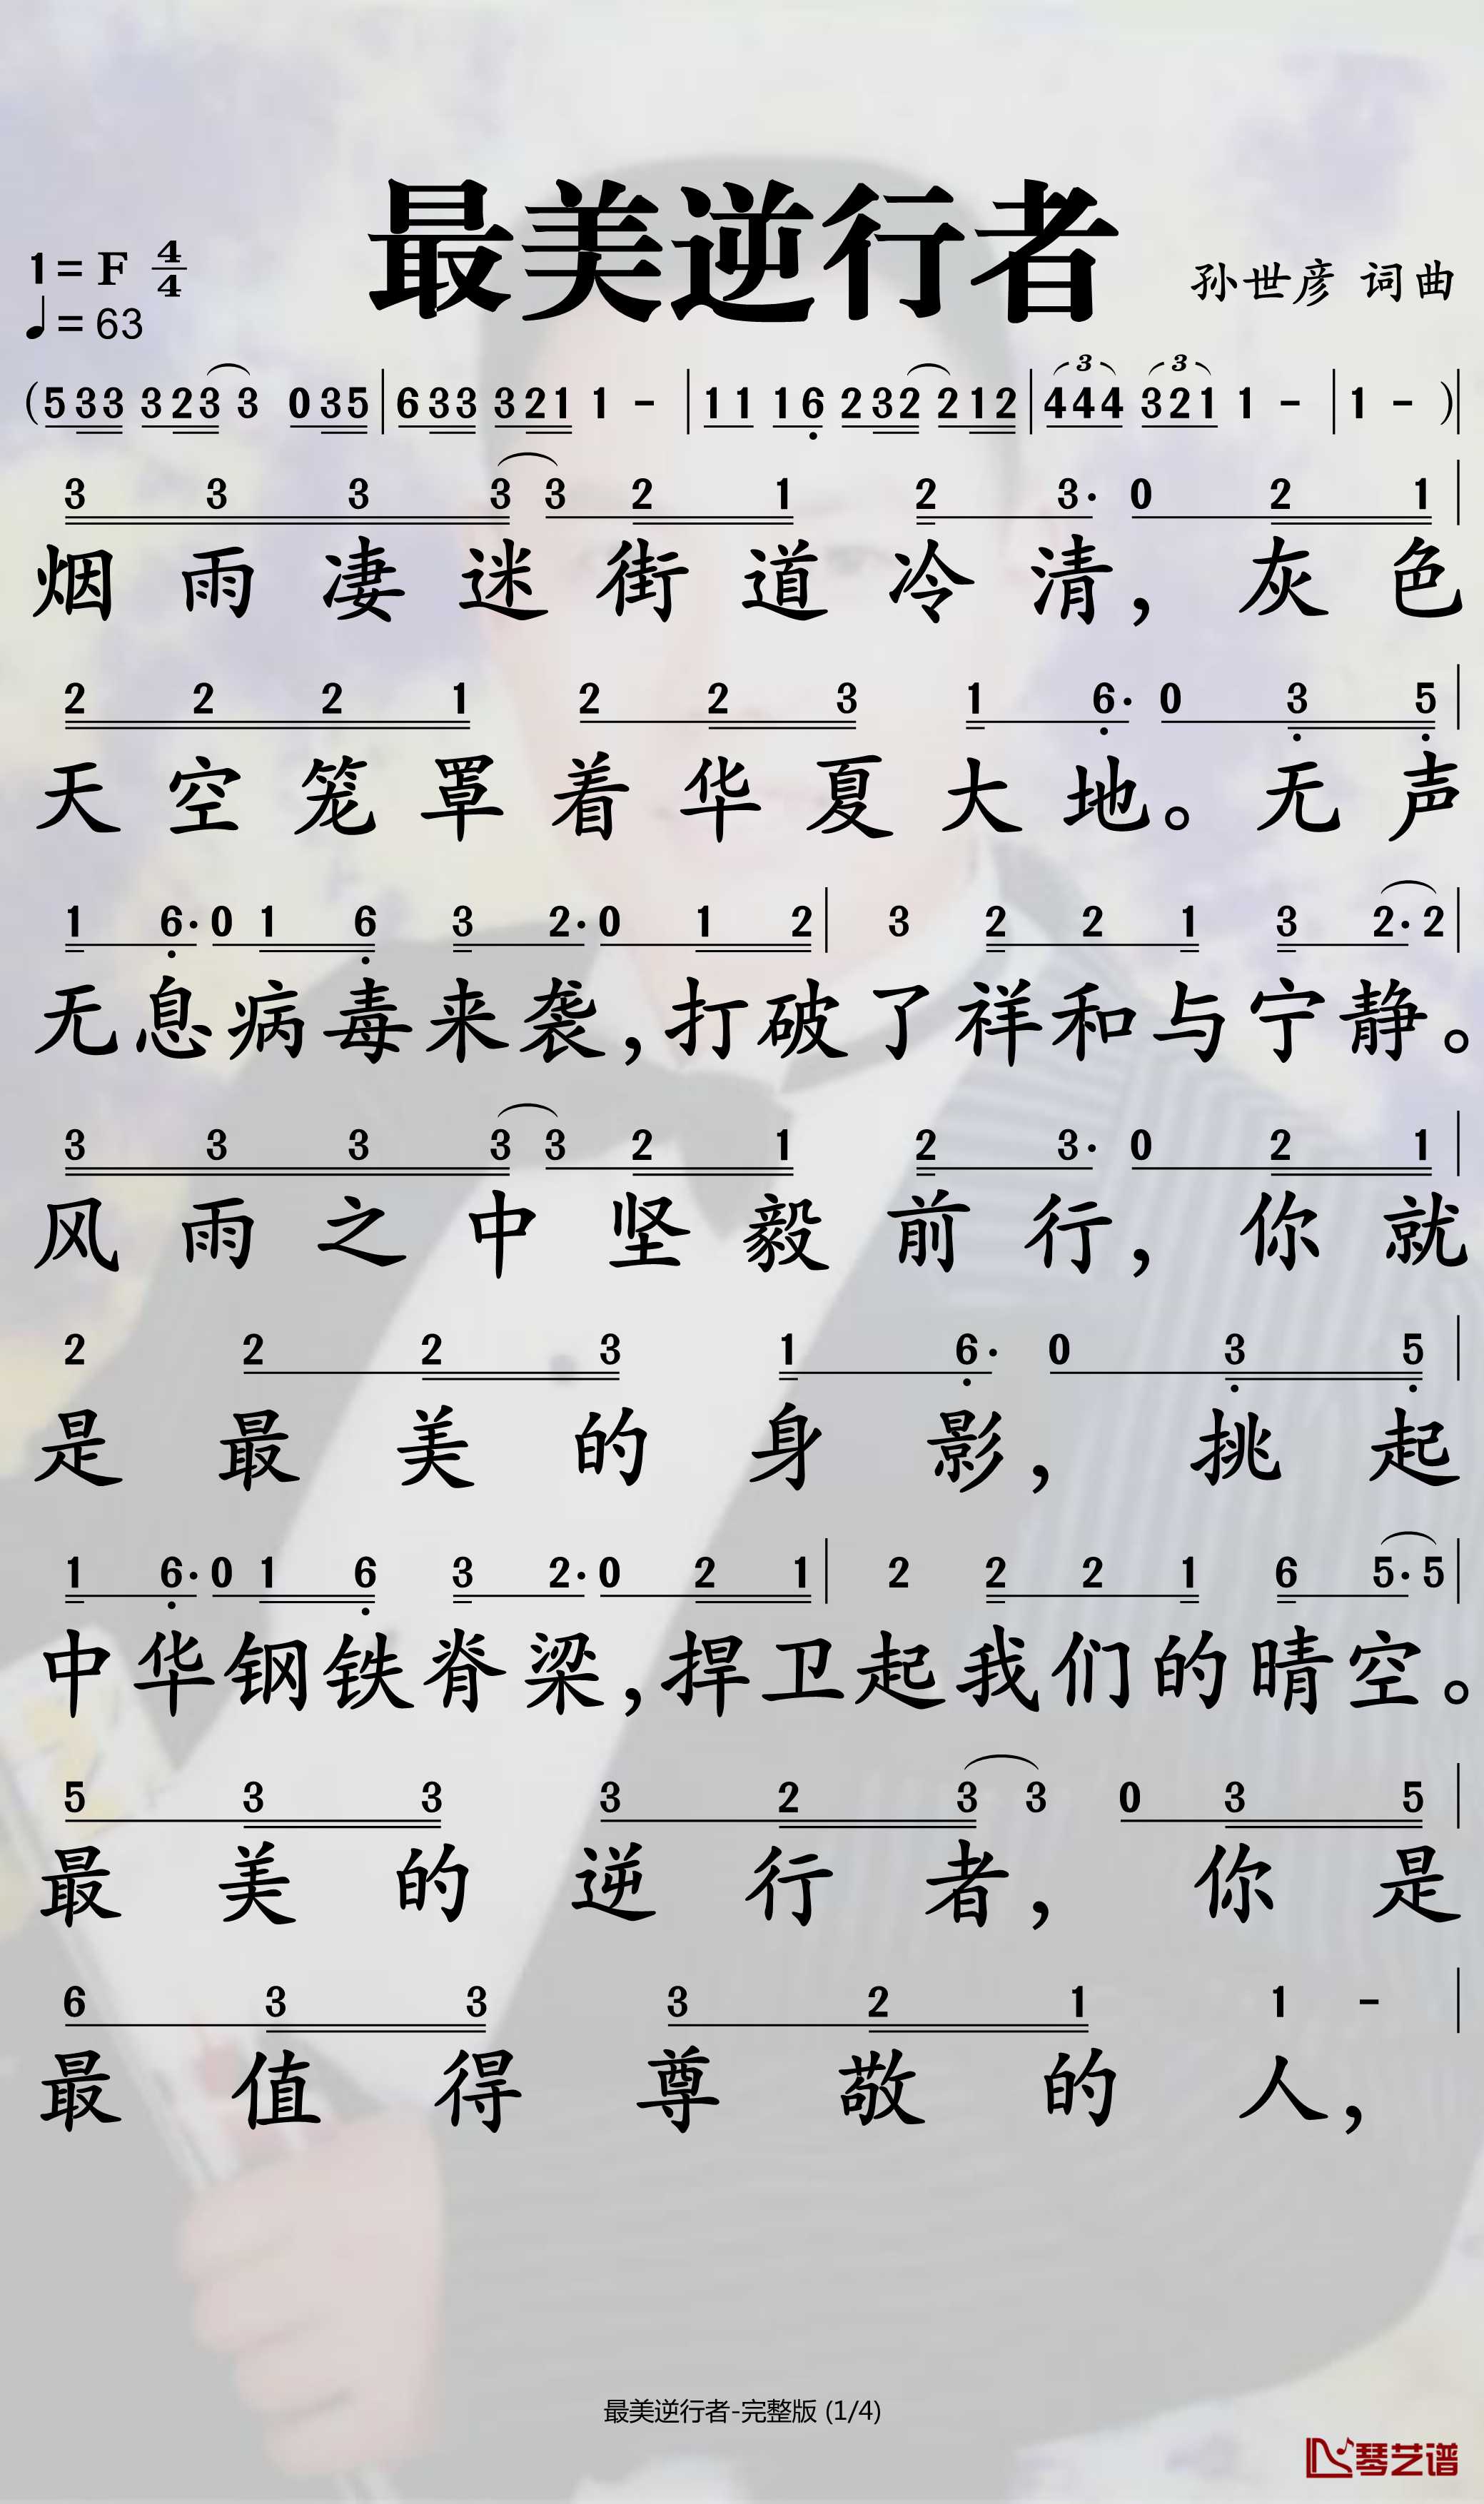 最美逆行者
1=F 4/4
♩=63
孙世彦 词曲
(533 323 3 035|633 321 1 -|11 16 232 212|444 321 1 -|1 -)|
3 3 3 3 3 2 1 2 3· 0 2 1|
烟雨凄迷街道冷清，灰色
2 2 2 1 2 2 3 1 6· 0 3 5|
天空笼罩着华夏大地。无声
1 6· 0 1 6 3 2· 0 1 2|3 2 2 1 3 2· 2|
无息病毒来袭，打破了祥和与宁静。
3 3 3 3 3 2 1 2 3· 0 2 1|
风雨之中坚毅前行，你就
2 2 2 3 1 6· 0 3 5|
是最美的身影，挑起
1 6· 0 1 6 3 2· 0 2 1|2 2 2 1 6 5· 5|
中华钢铁脊梁，捍卫起我们的晴空。
5 3 3 3 2 3 3 0 3 5|
最美的逆行者，你是
6 3 3 3 2 1 1 -|
最值得尊敬的人，
最美逆行者-完整版 (1/4)
琴艺谱